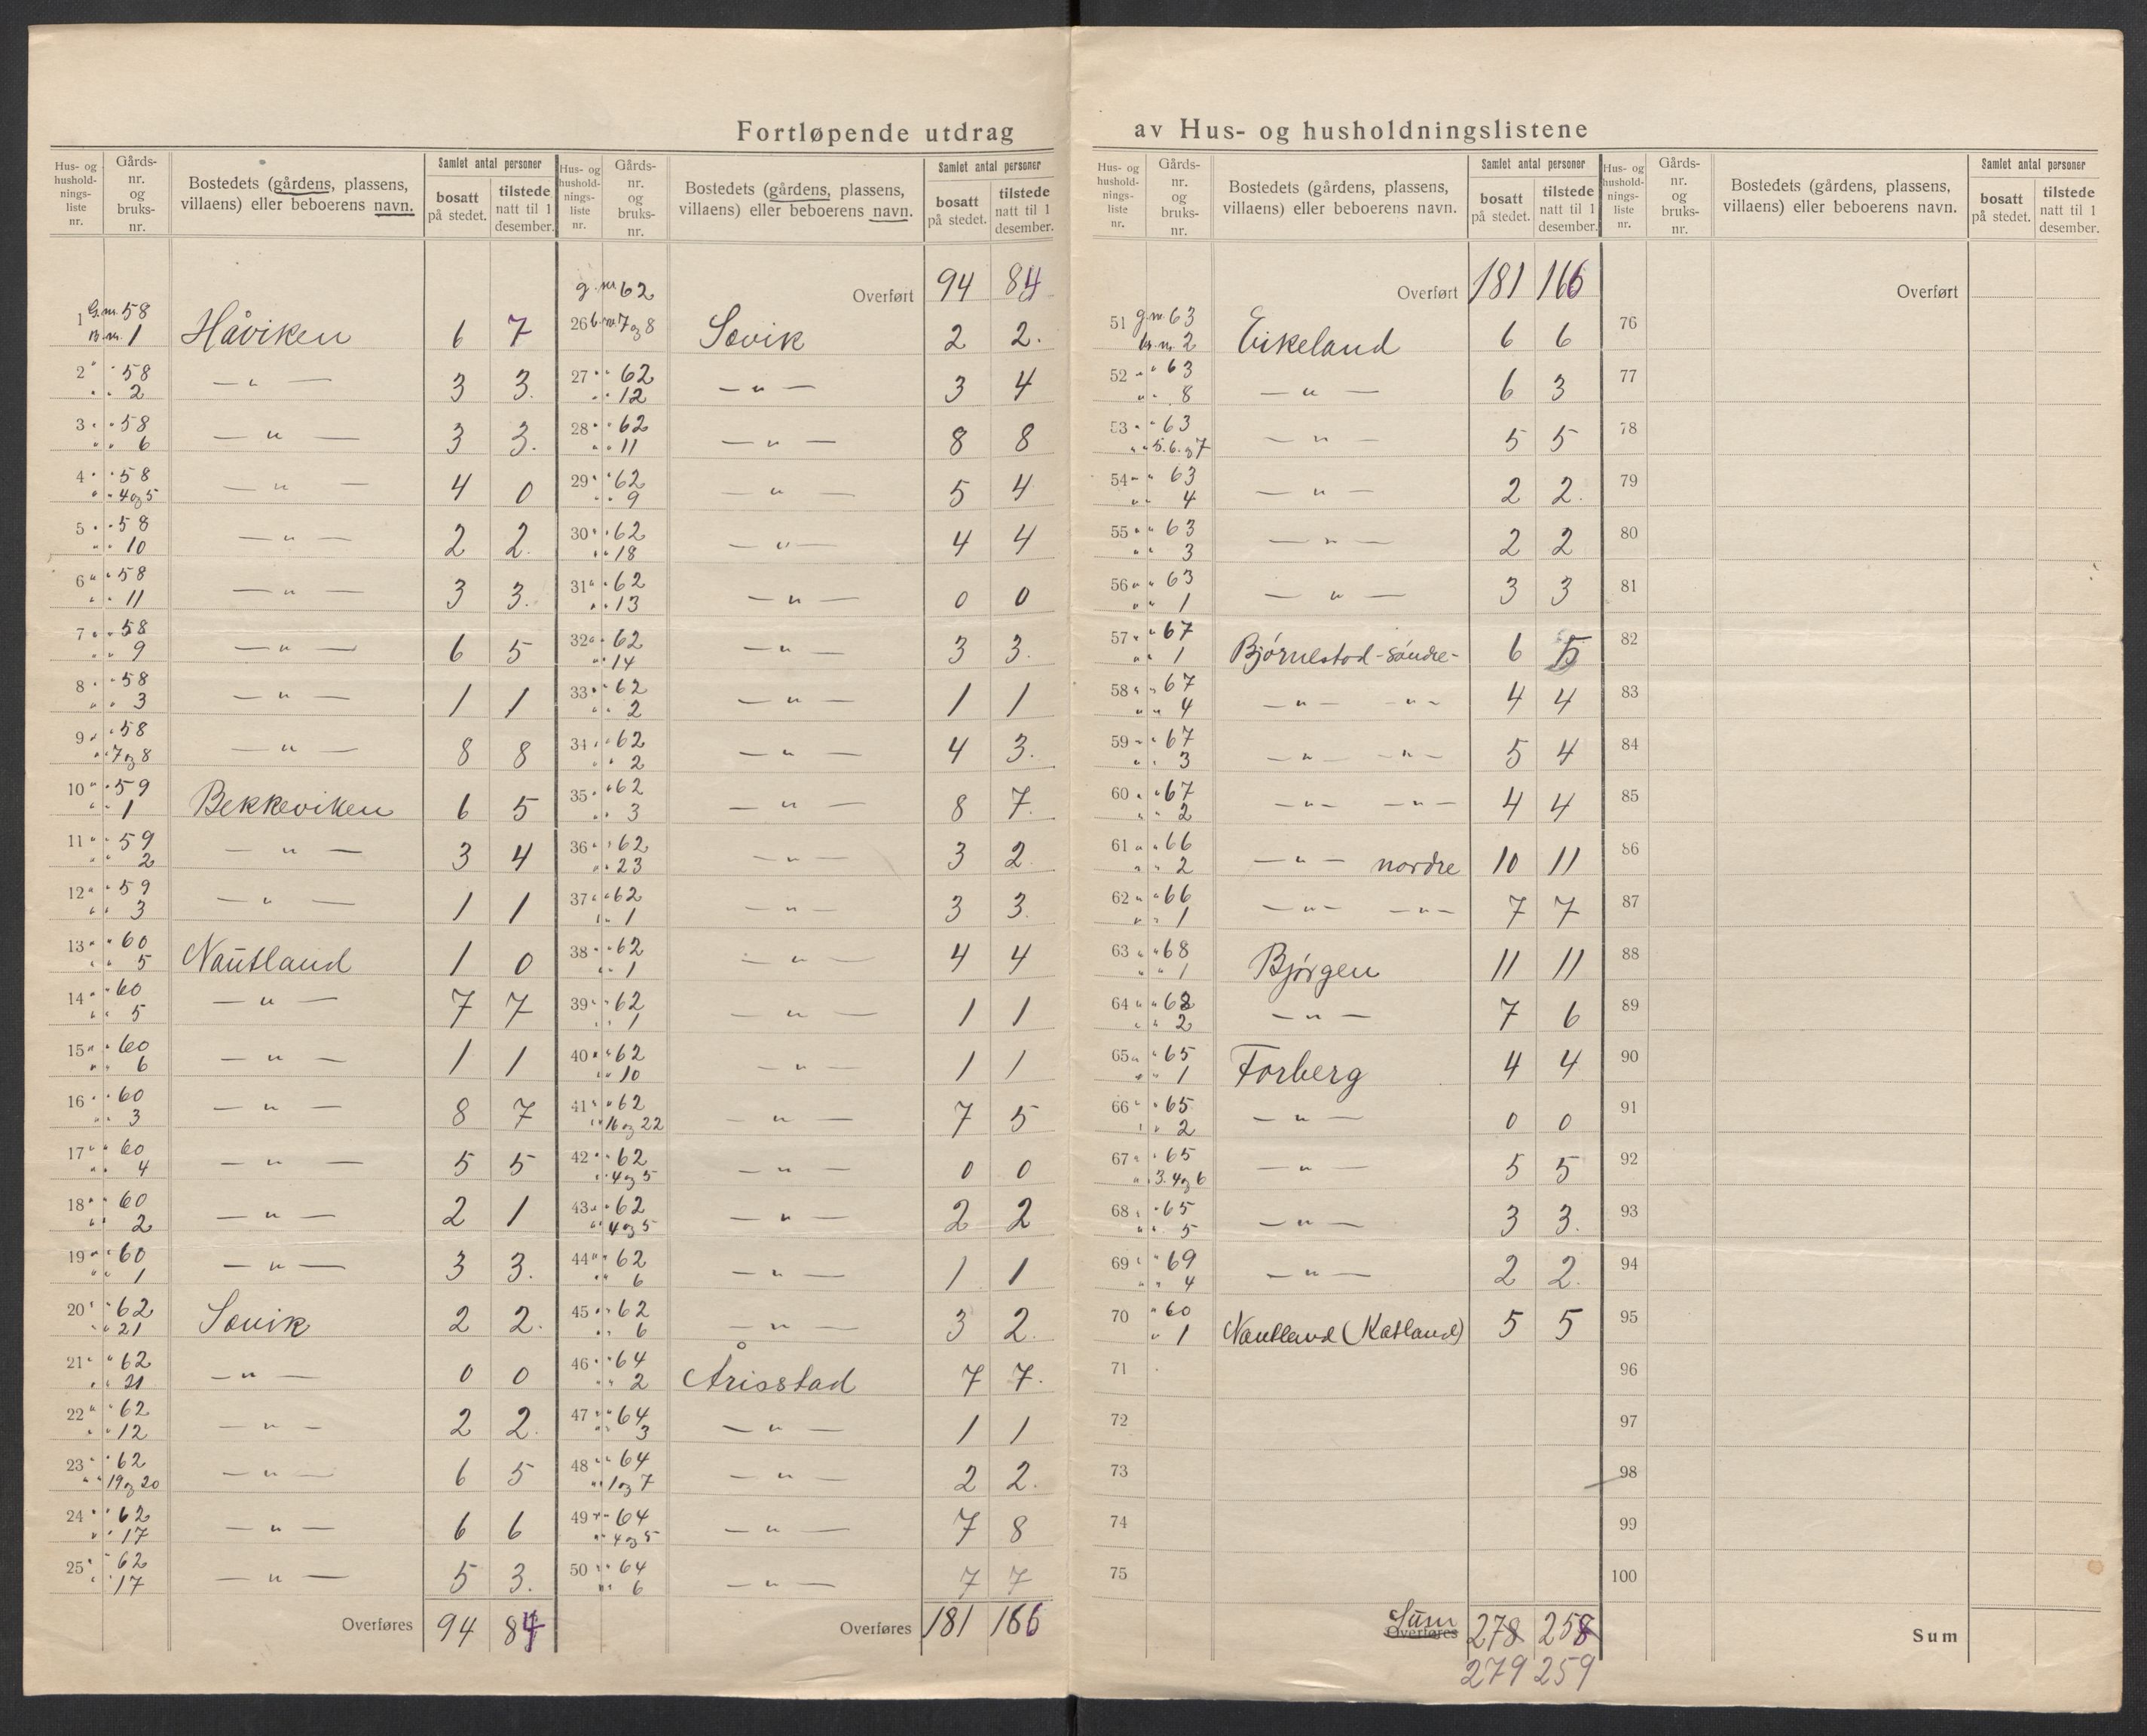 Fortløpende utdrag av Hus- og husholdningslistene
Hus- og hushold-nings-liste nr. | Gårds-nr. og bruks-nr. | Bostedets (gårdens, plassens, villaens) eller beboerens navn. | Samlet antal personer | bosatt på stedet. | tilstede natt til 1 desember.
1 G.nr. 58 B.nr. 1 Håviken 6 7
2 " 58 " 2 — " — 3 3.
3 " 58 " 6 — " — 3 3.
4 " 58 " 4 og 5 — " — 4 0
5 " 58 " 10 — " — 2 2.
6 " 58 " 11 — " — 3 3.
7 " 58 " 9 — " — 6 5
8 " 58 " 3 — " — 1 1
9 " 58 " 7 og 8 — " — 8 8
10 " 59 " 1 Bekkeviken 6 5
11 " 59 " 2 — " — 3 4
12 " 59 " 3 — " — 1 1
13 " 60 " 5 Nautland 1 0
14 " 60 " 5 — " — 7 7
15 " 60 " 6 — " — 1 1
16 " 60 " 3 — " — 8 7
17 " 60 " 4 — " — 5 5
18 " 60 " 2 — " — 2 1
19 " 60 " 1 — " — 3 3.
20 " 62 " 21 Sævik 2 2.
21 " 62 " 21 — " — 0 0
22 " 62 " 12 — " — 2 2.
23 " 62 " 19 og 20 — " — 6 5
24 " 62 " 17 — " — 6 6
25 " 62 " 17 — " — 5 3.
Overføres 94 84
Hus- og hushold-nings-liste nr. | Gårds-nr. og bruks-nr. | Bostedets (gårdens, plassens, villaens) eller beboerens navn. | Samlet antal personer | bosatt på stedet. | tilstede natt til 1 desember.
Overført 94 84
26 g.nr. 62 b.nr. 7 og 8 Sævik 2 2.
27 " 62 " 12 — " — 3 4
28 " 62 " 11 — " — 8 8
29 " 62 " 9 — " — 5 4
30 " 62 " 18 — " — 4 4
31 " 62 " 13 — " — 0 0
32 " 62 " 14 — " — 3 3.
33 " 62 " 2 — " — 1 1
34 " 62 " 2 — " — 4 3.
35 " 62 " 3 — " — 8 7.
36 " 62 " 23 — " — 3 2
37 " 62 " 1 — " — 3 3.
38 " 62 " 1 — " — 4 4
39 " 62 " 1 — " — 1 1
40 " 62 " 10 — " — 1 1
41 " 62 " 16 og 22 — " — 7 5
42 " 62 " 4 og 5 — " — 0 0
43 " 62 " 4 og 5 — " — 2 2
44 " 62 " 6 — " — 1 1
45 " 62 " 6 — " — 3 2.
46 " 64 " 2 Årisstad 7 7.
47 " 64 " 3 — " — 1 1
48 " 64 " 1 og 7 — " — 2 2.
49 " 64 " 4 og 5 — " — 7 8
50 " 64 " 6 — " — 7 7
Overføres 181 166
Hus- og hushold-nings-liste nr. | Gårds-nr. og bruks-nr. | Bostedets (gårdens, plassens, villaens) eller beboerens navn. | Samlet antal personer | bosatt på stedet. | tilstede natt til 1 desember.
Overført 181 166
51 g.nr. 63 br.nr. 2 Eikeland 6 6
52 " 63 " 8 — " — 6 3
53 " 63 " 5. 6. og 7 — " — 5 5
54 " 63 " 4 — " — 2 2.
55 " 63 " 3 — " — 2 2
56 " 63 " 1 — " — 3 3
57 " 67 " 1 Bjørnestad - søndre - 6 5
58 " 67 " 4 — " — — " — 4 4
59 " 67 " 3 — " — — " — 5 4
60 " 67 " 2 — " — — " — 4 4
61 " 66 " 2 — " — nordre 10 11
62 " 66 " 1 — " — — " — 7 7
63 " 68 " 1 Bjørgen 11 11
64 " 68 " 2 — " — 7 6
65 " 65 " 1 Forberg 4 4
66 " 65 " 2 — " — 0 0
67 " 65 " 3. 4 og 6 — " — 5 5
68 " 65 " 5 — " — 3 3.
69 " 69 " 4 — " — 2 2.
70 " 60 " 1 Nautland (Katland) 5 5
71
72
73
74
75
Sum Overføres 278 258
279 259
Hus- og hushold-nings-liste nr. | Gårds-nr. og bruks-nr. | Bostedets (gårdens, plassens, villaens) eller beboerens navn. | Samlet antal personer | bosatt på stedet. | tilstede natt til 1 desember.
Overført
76
77
78
79
80
81
82
83
84
85
86
87
88
89
90
91
92
93
94
95
96
97
98
99
100
Sum